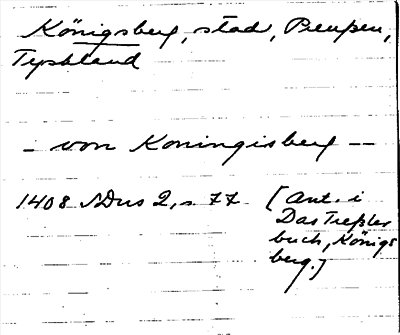 Königsberg, stad, Preussen,
Tyskland
- von Koningisberg --
1408 SDns 2, s 77 [Ant. i
Das Tressler
buch, Königs
berg.]